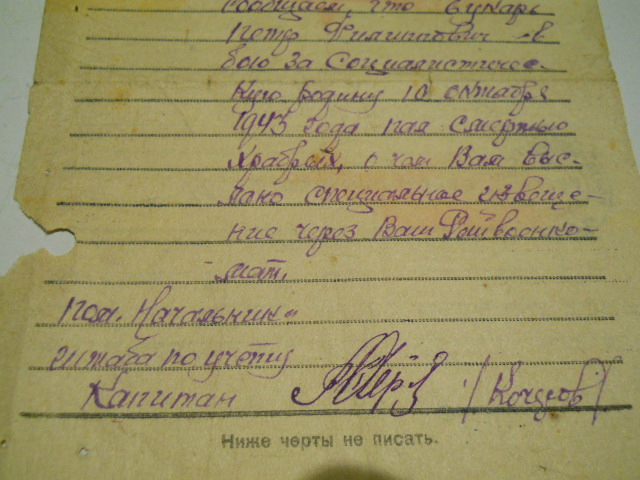 сообщаем, что Букарь
Петр Филиппович в
бою за Социалистичес-
кую родину 10 октября
1943 года пал смертью
храбрых, о чем Вам выс-
лано специальное извеще-
ние через Ваш Райвоенко-
мат.
Пом. Начальника
штаба по учёту
Капитан
Ниже черты не писать.